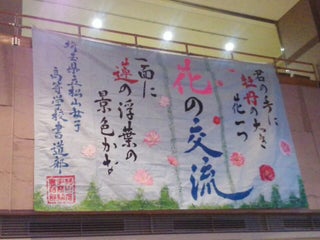 君の手に
牡丹の大き
花一つ
花の交流
一面に
蓮の浮葉の
景色かな
埼玉県立松山女子
高等学校書道部